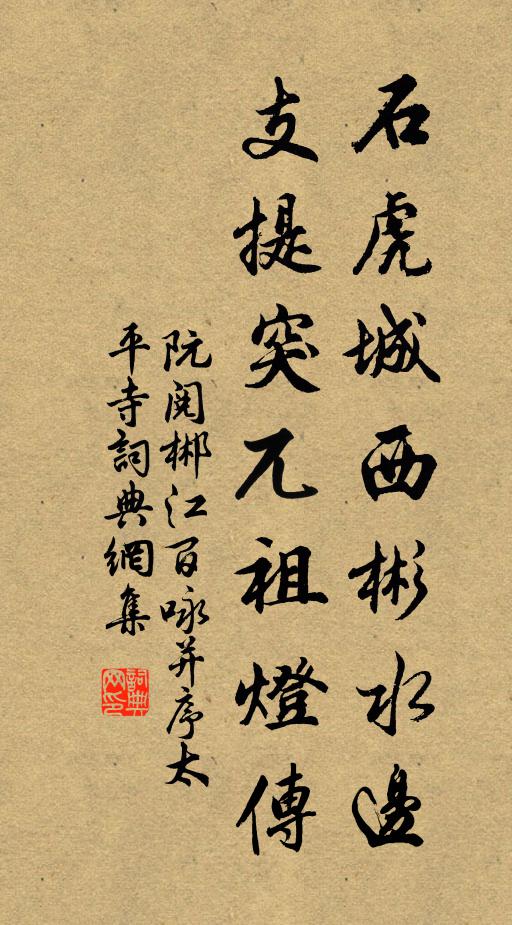 石虎城西彬水邊
支提突兀祖燈傳
阮閱郴江百咏并序太
平寺詞典網集
詞典網印